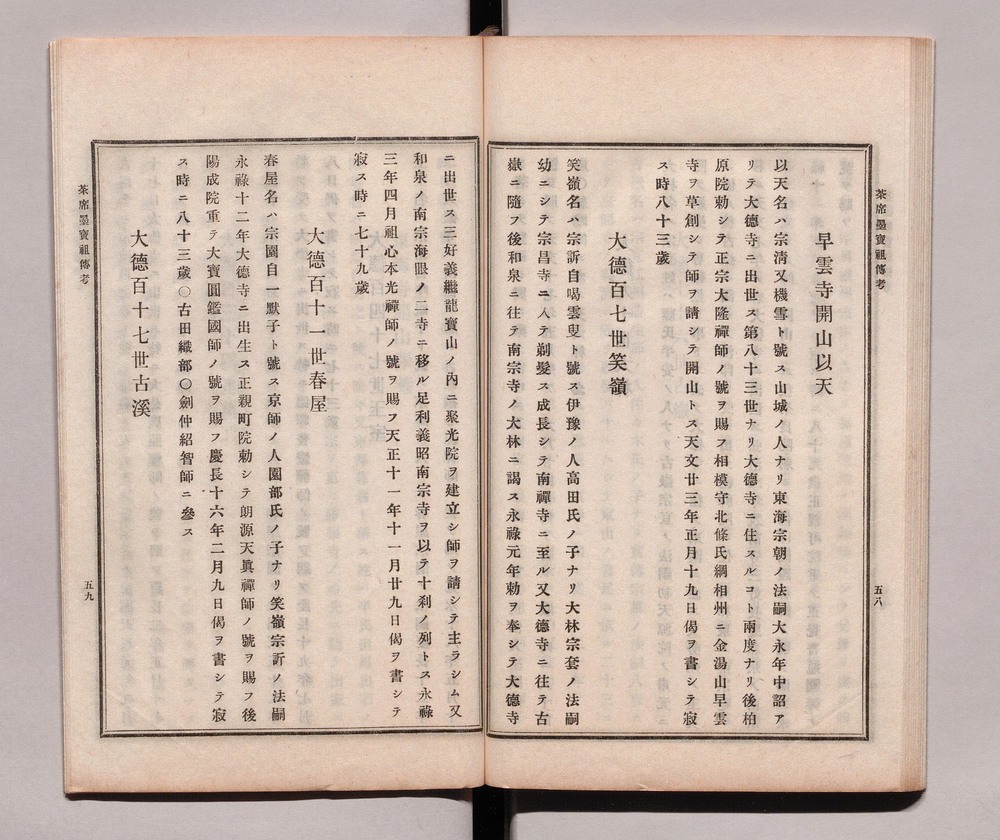 茶席墨寶祖傳考
早雲寺開山以天
以天名ハ宗淸又機雪ト號ス山城ノ人ナリ東海宗朝ノ法嗣大永年中詔ア
リテ大德寺ニ出世ス第八十三世ナリ大德寺ニ住スルコト兩度ナリ後柏
原院勅シテ正宗大隆禪師ノ號ヲ賜フ相模守北條氏綱相州ニ金湯山早雲
寺ヲ草創シテ師ヲ請シテ開山トス天文廿三年正月十九日偈ヲ書シテ寂
ス時八十三歲
大德百七世笑嶺
笑嶺名ハ宗訢自喝雲叟ト號ス伊豫ノ人高田氏ノ子ナリ大林宗套ノ法嗣
幼ニシテ宗昌寺ニ入テ剃髮ス成長シテ南禪寺ニ至ル又大德寺ニ往テ古
嶽ニ隨フ後和泉ニ往テ南宗寺ノ大林ニ謁ス永祿元年勅ヲ奉シテ大德寺
五八
ニ出世ス三好義繼龍寶山ノ內ニ聚光院ヲ建立シ師ヲ請シテ主ラシム又
和泉ノ南宗海眼ノ二寺ニ移ル足利義昭南宗寺ヲ以テ十刹ノ列トス永祿
三年四月祖心本光禪師ノ號ヲ賜フ天正十一年十一月廿九日偈ヲ書シテ
寂ス時ニ七十九歲
大德百十一世春屋
春屋名ハ宗園自一默子ト號ス京師ノ人園部氏ノ子ナリ笑嶺宗訢ノ法嗣
永祿十二年大德寺ニ出生ス正親町院勅シテ朗源天眞禪師ノ號ヲ賜フ後
陽成院重テ大寶圓鑑國師ノ號ヲ賜フ慶長十六年二月九日偈ヲ書シテ寂
ス時ニ八十三歲○古田織部○劍仲紹智師ニ參ス
大德百十七世古溪
茶席墨寶祖傳考
五九